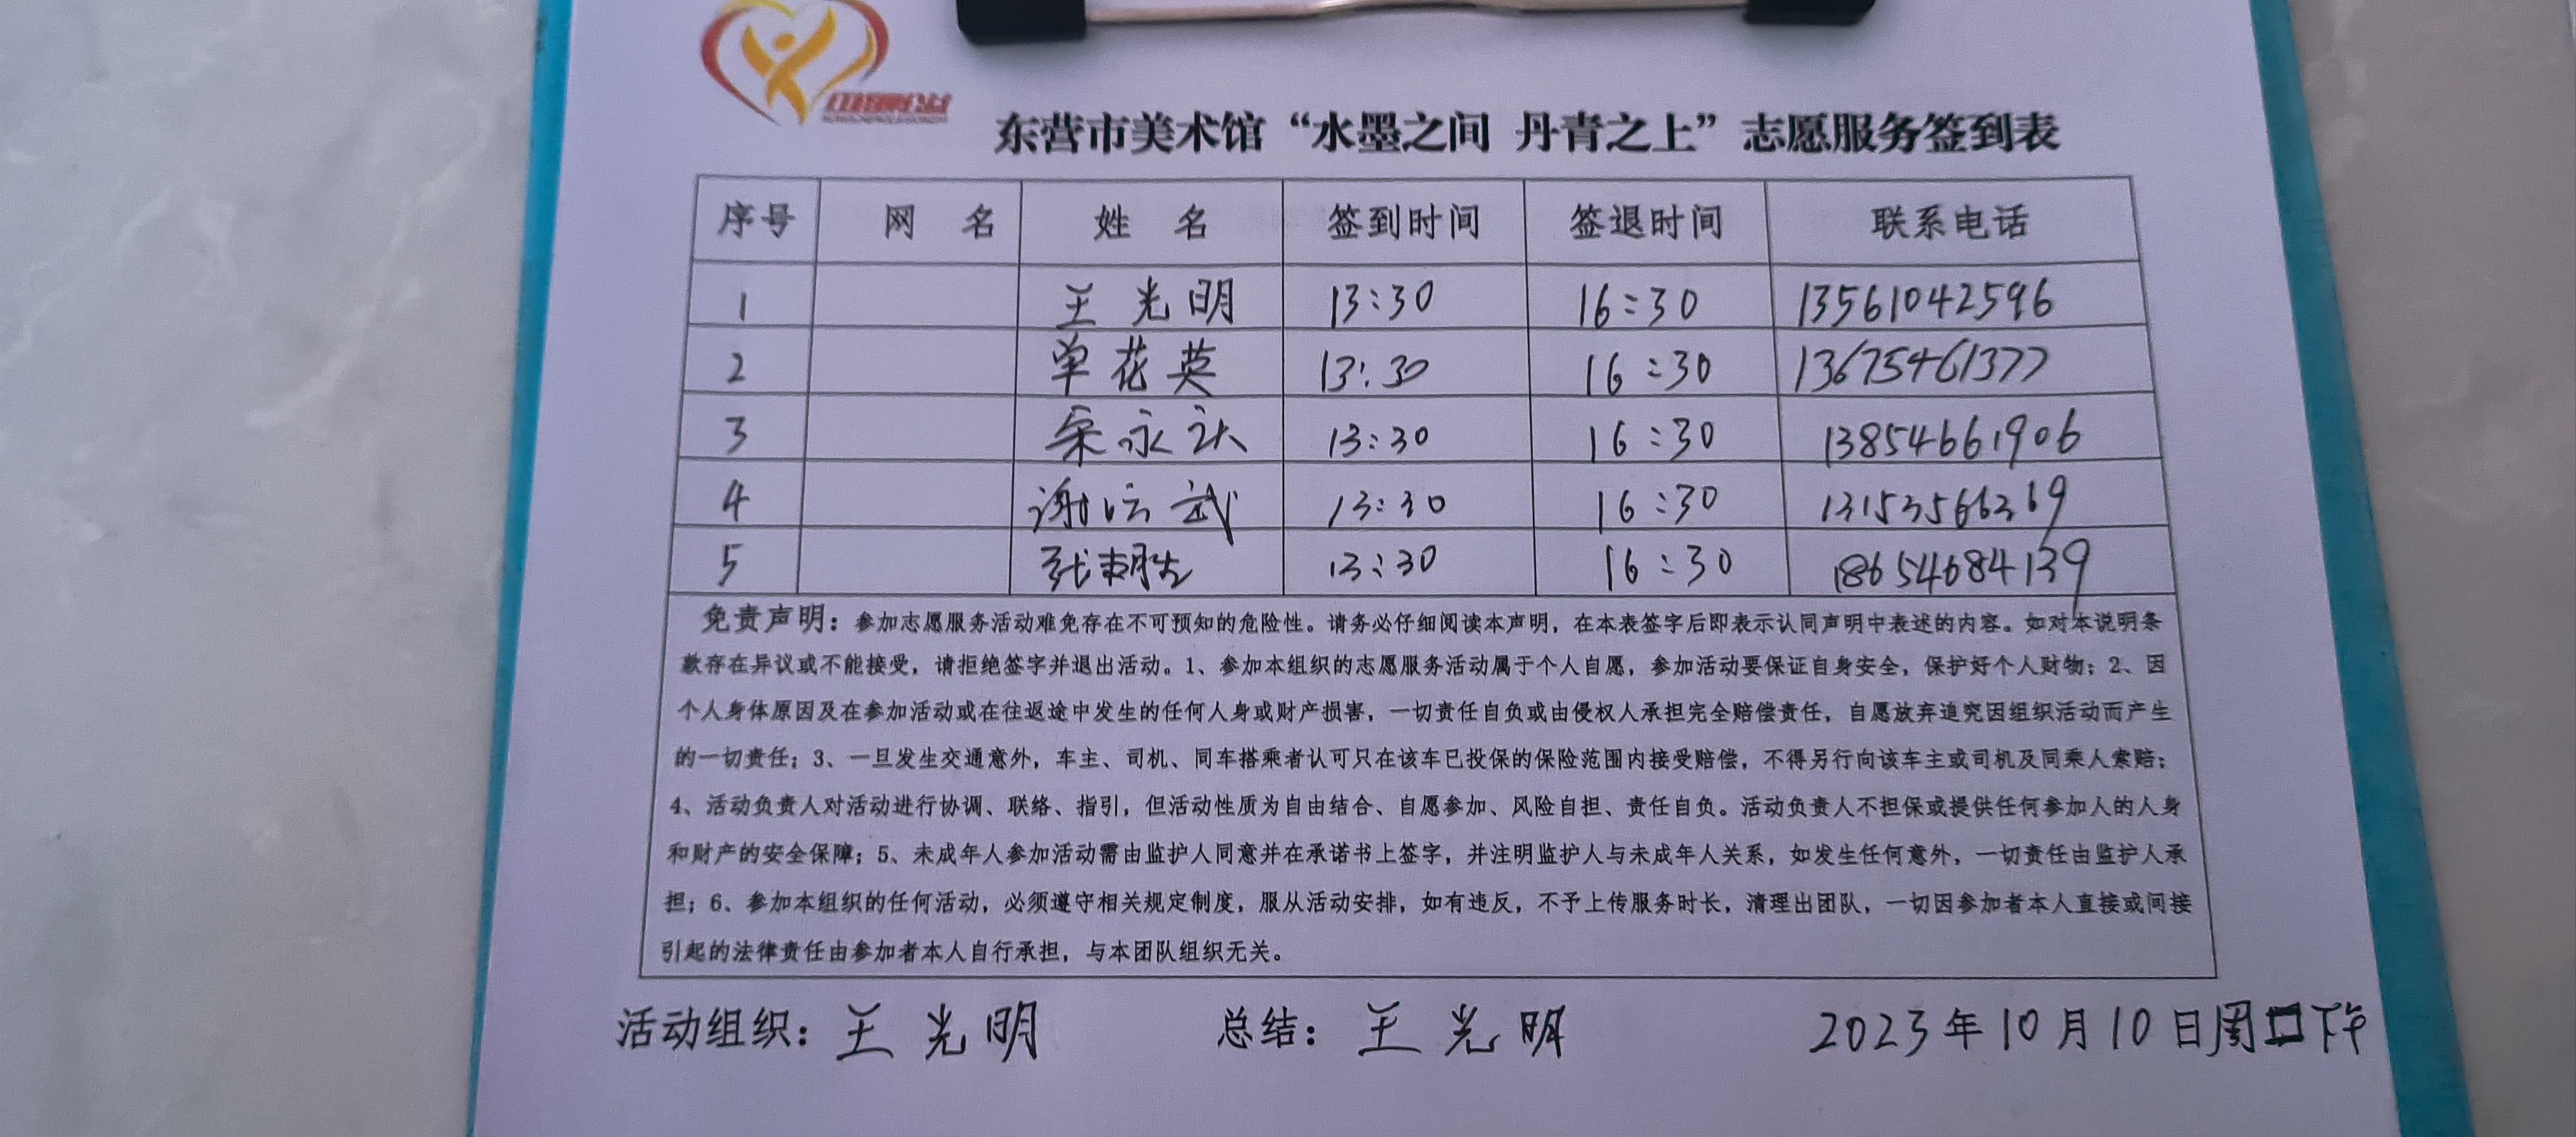 东营市美术馆“水墨之间 丹青之上”志愿服务签到表
序号 网 名 姓 名 签到时间 签退时间 联系电话
1 王光明 13:30 16:30 13561042596
2 单花英 13:30 16:30 13675461377
3 永 13:30 16:30 13854661906
4 谢 武 13:30 16:30 13153566269
5 张朝胜 13:30 16:30 18654684139
免责声明：参加志愿服务活动难免存在不可预知的危险性。请务必仔细阅读本声明，在本表签字后即表示认同声明中表述的内容。如对本说明条
款存在异议或不能接受，请拒绝签字并退出活动。1、参加本组织的志愿服务活动属于个人自愿，参加活动要保证自身安全，保护好个人财物；2、因
个人身体原因及在参加活动或在往返途中发生的任何人身或财产损害，一切责任自负或由侵权人承担完全赔偿责任，自愿放弃追究因组织活动而产生
的一切责任；3、一旦发生交通意外，车主、司机、同车搭乘者认可只在该车已投保的保险范围内接受赔偿，不得另行向该车主或司机及同乘人索赔；
4、活动负责人对活动进行协调、联络、指引，但活动性质为自由结合、自愿参加、风险自担、责任自负。活动负责人不担保或提供任何参加人的人身
和财产的安全保障；5、未成年人参加活动需由监护人同意并在承诺书上签字，并注明监护人与未成年人关系，如发生任何意外，一切责任由监护人承
担；6、参加本组织的任何活动，必须遵守相关规定制度，服从活动安排，如有违反，不予上传服务时长，清理出团队，一切因参加者本人直接或间接
引起的法律责任由参加者本人自行承担，与本团队组织无关。
活动组织：王光明 总结：王光明 2023年10月10日周 下午